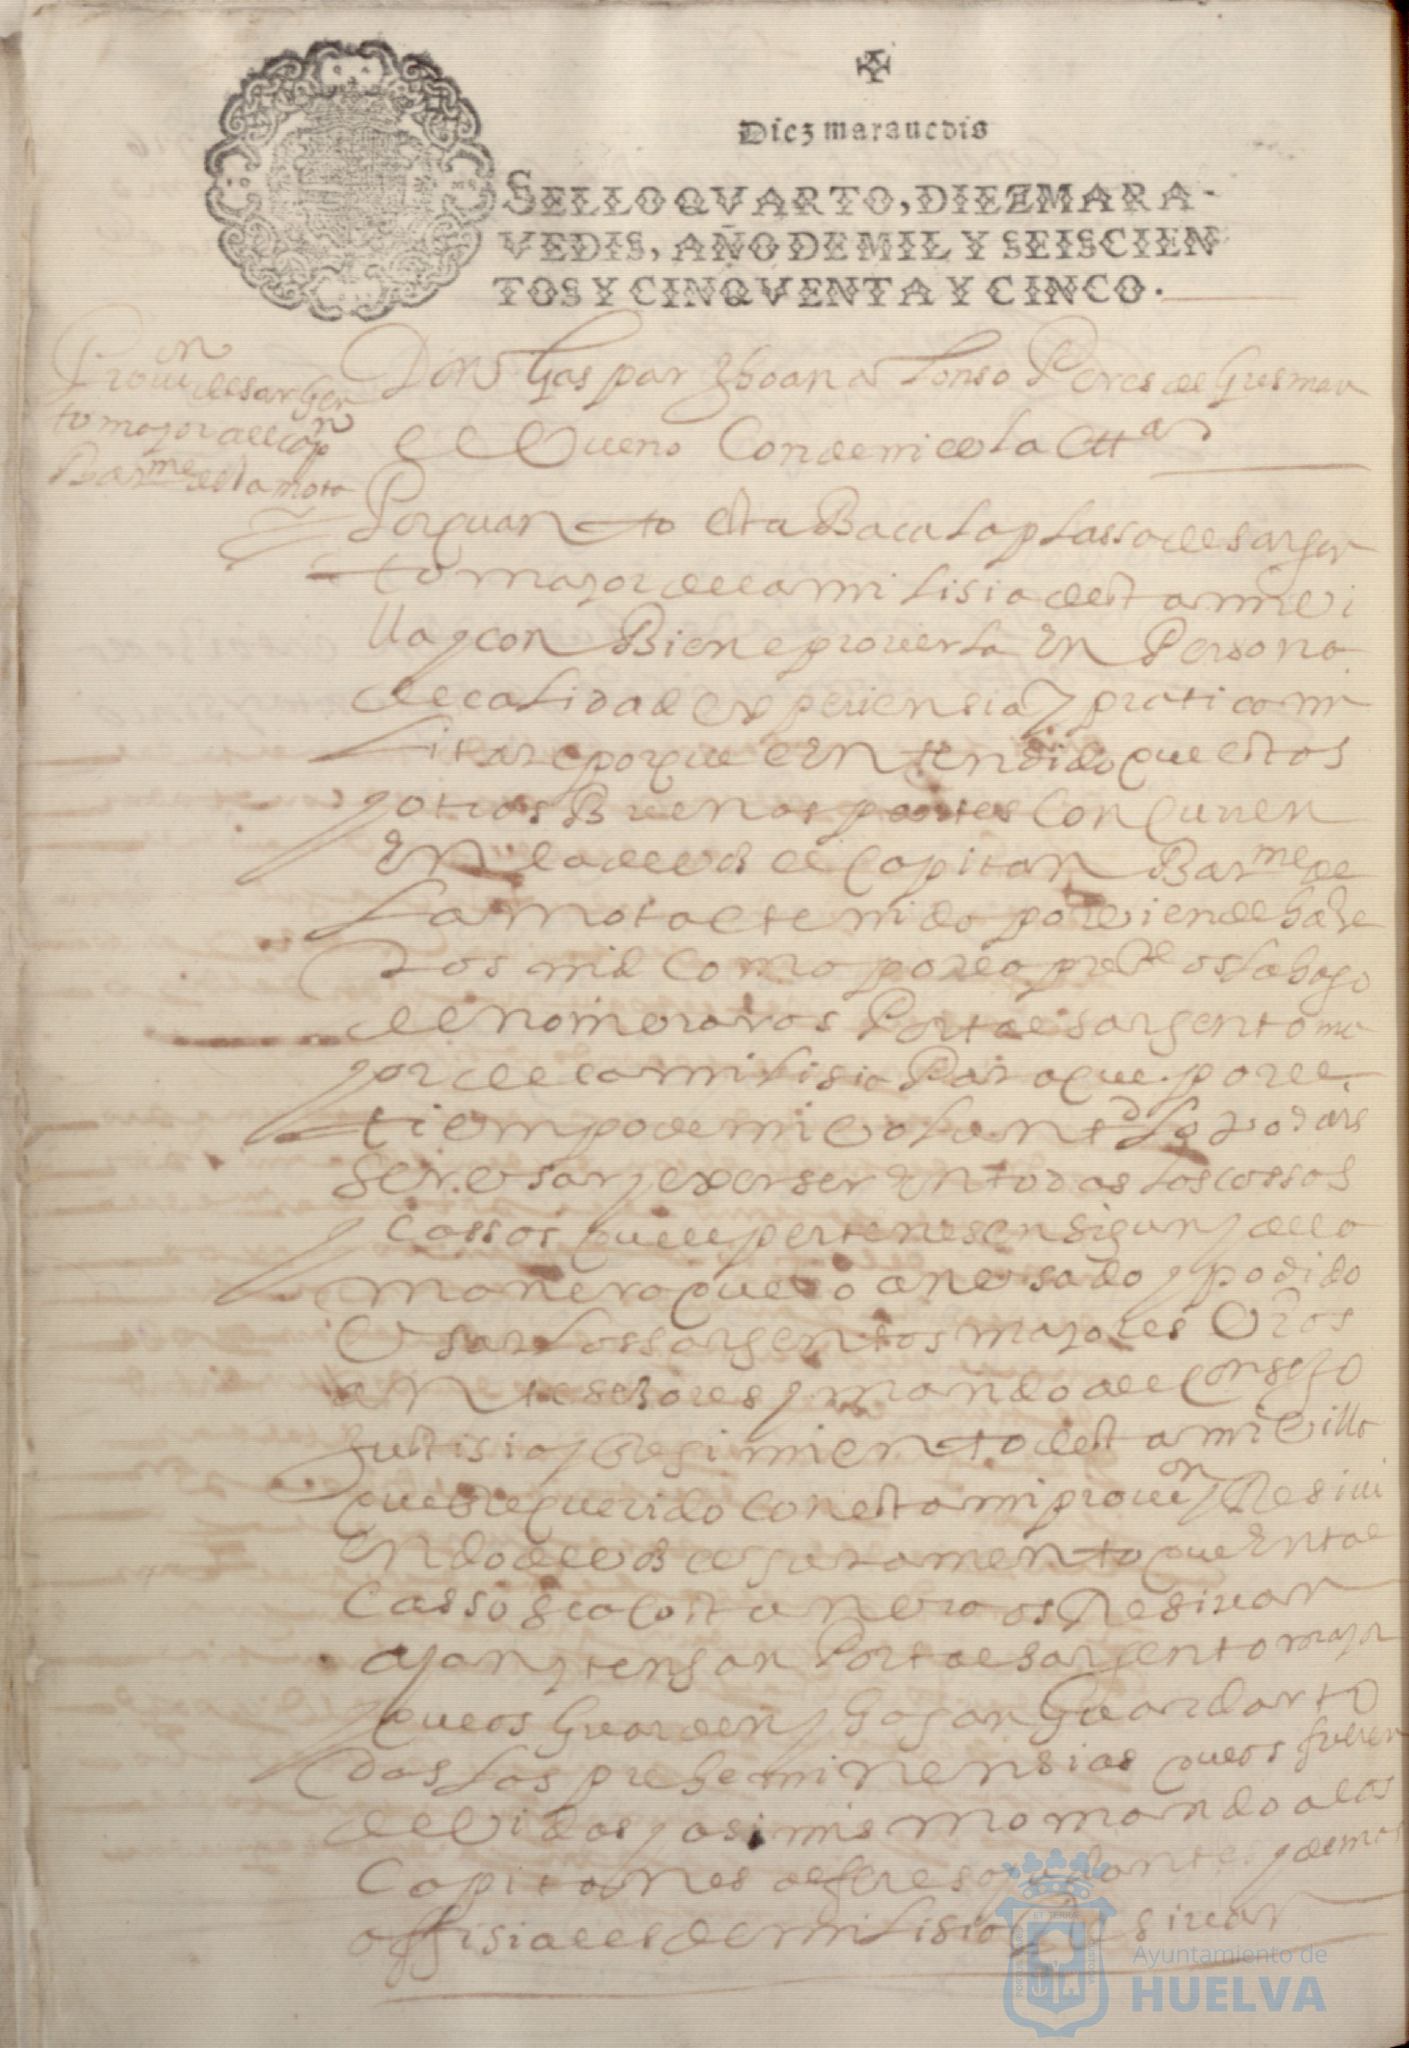 Diez maravedis
SELLO QVARTO, DIEZ MARA-
VEDIS, AÑO DE MIL Y SEISCIEN
TOS Y CINQVENTA Y CINCO.
Provi.on de sargen
to mayor del cap.n
Bar.me de la mota
Don Gaspar Jhoan alonso Peres de Gusman
el Bueno Conde mi de la Ett.a
Por quanto esta Baca la plassa de sargen
to mayor de la milisia desta mi vi
lla y con Biene proveerla En Persona
de calidad experiensia y pratica mi
litar e porque e En tendido que estas
y otras Buenas partes Concurren
En la de vos el Capitan Bar.me de
la mota e tenido por vien de haze
ros md como por la pre.te os la hago
de nombraros Por tal sargento ma
yor de la milisia Para que por el
tiempo de mi volunt.d lo podais
ser vsar y exerser En todas las cossas
y cassos que le pertenesen sigun y de la
manera que lo an vsado y podido
vsar los sargentos mayores vros
an tesesores y mando al Consejo
Justisia y Regimiento desta mi villa
que Requerido con esta mi provi.on y Resivi
Endo de vos el juramento que En tal
casso se acostumbra os Resivan
ayan y tengan Por tal sargento mayor
y que os guarden y hagan guardar to
das las preheminensias que os fueren
devidas y asi mismo mando a los
Capitanes alferes ayudantes y demas
offisiales de milisia Resivan
Ayuntamiento de
HUELVA